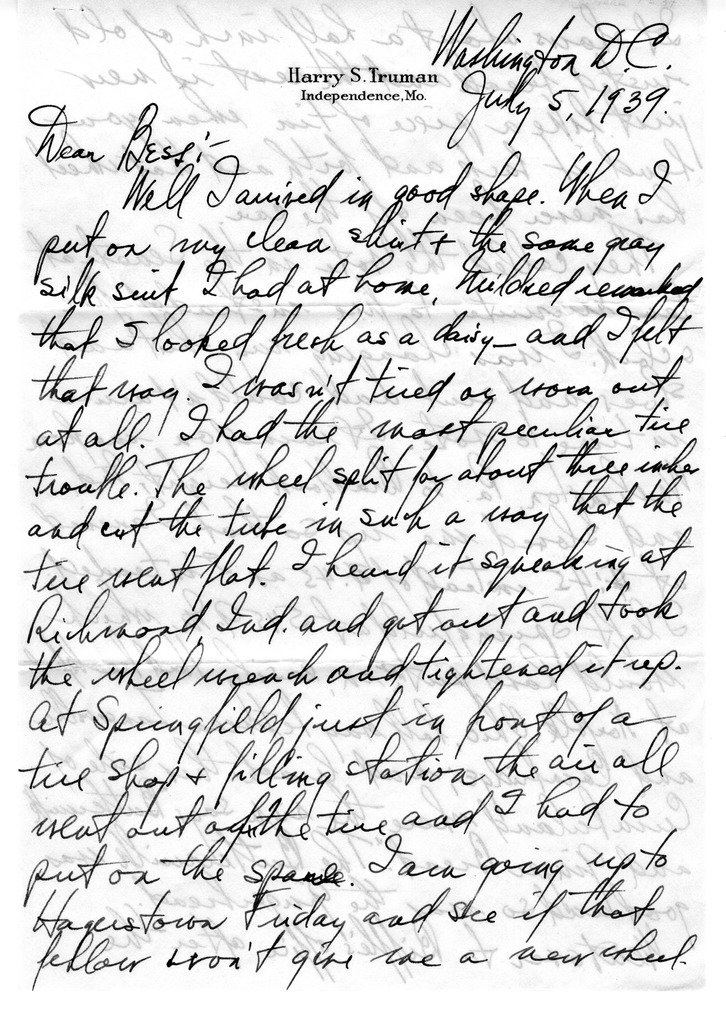 Washington D.C.
Harry S. Truman
Independence, Mo.
July 5, 1939.
Dear Bess:-
Well I arrived in good shape. When I
put on my clean shirt & the same gray
silk suit I had at home, Mildred remarked
that I looked fresh as a daisy - and I felt
that way. I wasn't tired or worn out
at all. I had the most peculiar tire
trouble. The wheel split for about three inches
and cut the tube in such a way that the
tire went flat. I heard it squeaking at
Richmond, Ind. and got out and took
the wheel wrench and tightened it up.
At Springfield just in front of a
tire shop & filling station the air all
went out of the tire and I had to
put on the spare. I am going up to
Hagerstown Friday and see if that
fellow won't give me a new wheel.